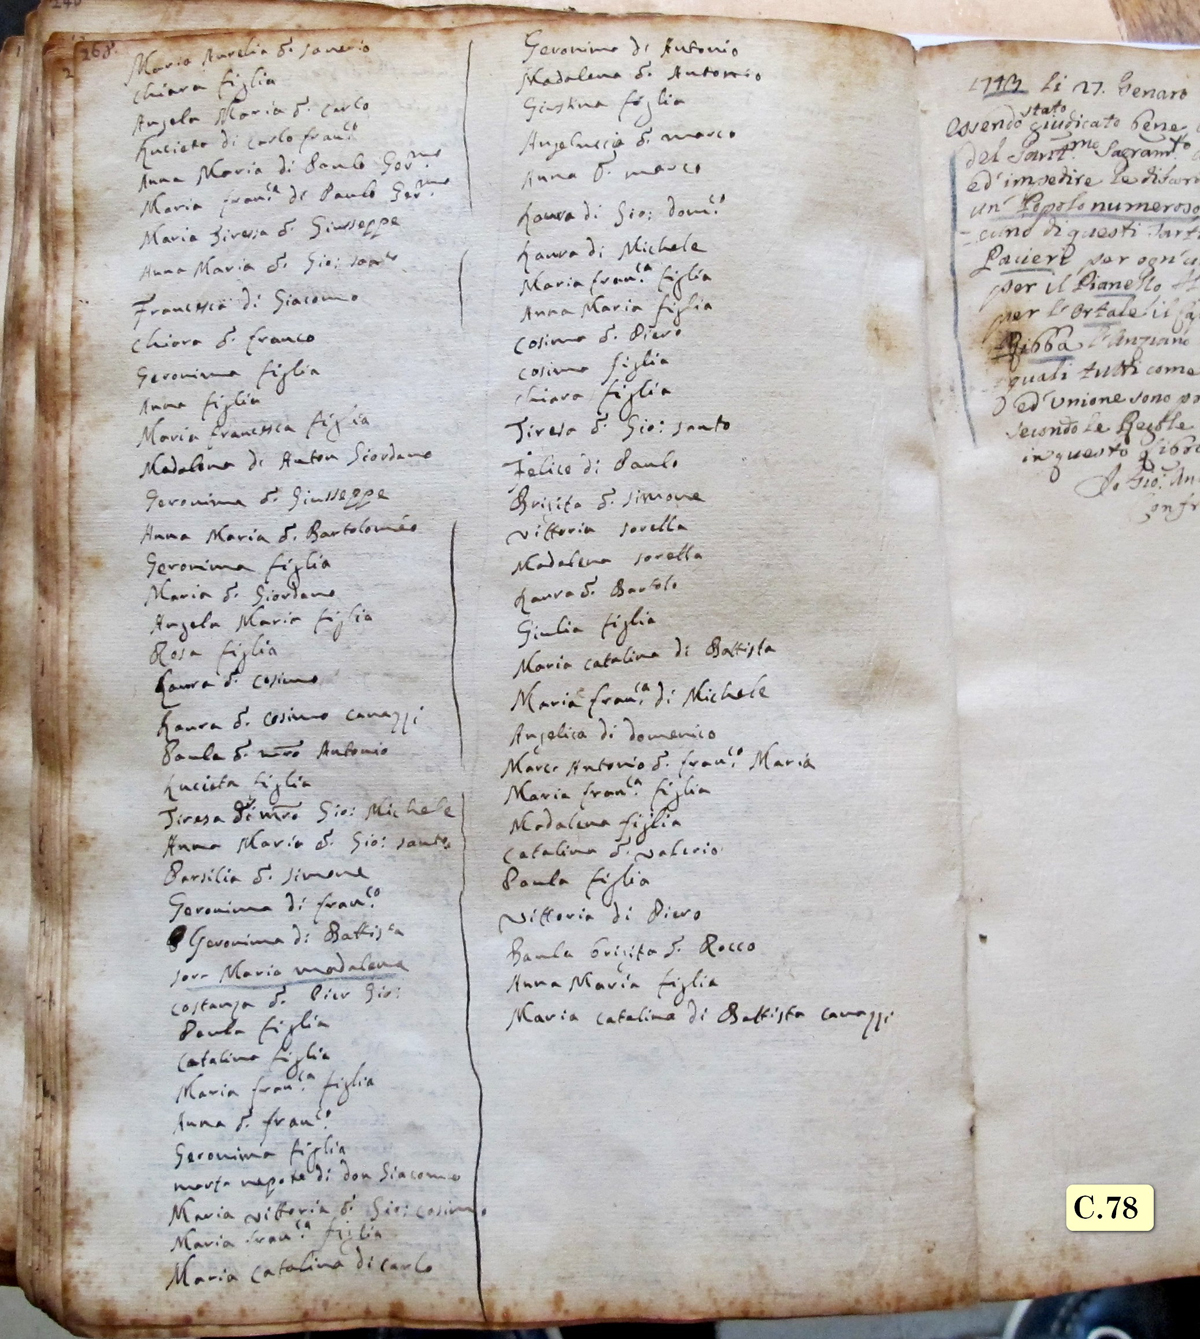 268
Maria Aurelia d. Saverio
Chiara figlia
Angela Maria d. Carlo
Lucieta di Carlo fran.co
Anna Maria di Paulo Ger.mo
Maria fran.ca di Paulo Ger.mo
Maria Tiresia d. Giuseppe
Anna Maria d. Gio: Santo
Francesca di Giacomo
Chiara d. franco
Geronima figlia
Anna figlia
Maria francesca figlia
Madalena di Anton Giordano
Geronima d. Giuseppe
Anna Maria d. Bartolomeo
Geronima figlia
Maria d. Giordano
Angela Maria figlia
Rosa figlia
Laura d. Cosimo
Laura d. Cosimo Canazzi
Paula d. mro Antonio
Lucieta figlia
Tiresa di mro Gio: Michele
Anna Maria d. Gio: Santo
Barsilia d. Simone
Geronima di fran.co
Geronima di Battista
sore Maria madalena
Costanza d. Pier Gio:
Paula figlia
Catalina figlia
Maria fran.ca figlia
Anna d. fran.co
Geronima figlia
marta nepote di don Giacomo
Maria vittoria d. Gio: Cosimo
Maria fran.ca figlia
Maria Catalina di Carlo
Geronima di Antonio
Madalena d. Antonio
Giustina figlia
Angeluccia d. marco
Anna d. marco
Laura di Gio: dom.co
Laura di Michele
Maria fran.ca figlia
Anna Maria figlia
Cosima d. Piero
Cosima figlia
Chiara figlia
Tiresa d. Gio: Santo
Felice di Paulo
Brigita d. Simone
Vittoria sorella
Madalena sorella
Laura d. Bartolo
Giulia figlia
Maria Catalina di Battista
Maria fran.ca di Michele
Angelica di domenico
Marc Antonio d. fran.co Maria
Maria fran.ca figlia
Madalena figlia
Catalina d. Valerio
Paula figlia
Vittoria di Piero
Paula brigita d. Rocco
Anna Maria figlia
Maria Catalina di Battista Canazzi
1743 li 27. Genaro
essendo stato giudicato bene
del Sant.me Sagram.to
ed'impedire le discor
un' Popolo numeroso
cuno di questi
Pacieri per ogn'
per il Pianello
per l'Ortale: il
Bibba l'Anziano
quali tutti come
ed'Unione sono po
secondo le Regole
in questo libro
Io Gio: An
C.78